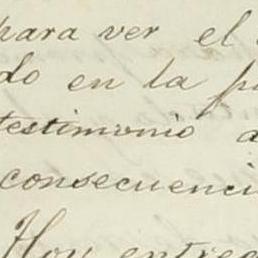 para ver el
do en la p
testimonio a
consecuenci
Hoy entreg